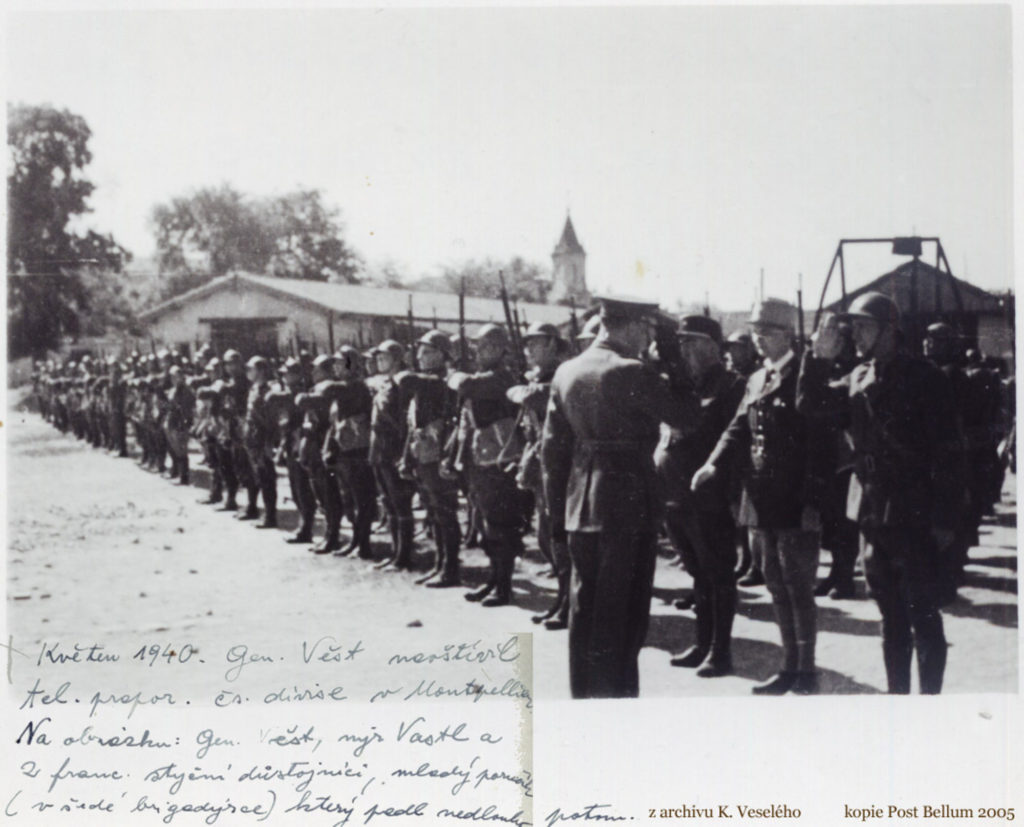 Květen 1940. Gen. Věst navštívil
tel. prapor. čs. divise v Montpellier
Na obrázku: Gen. Věst, mjr Vastl a
2 franc. styční důstojníci, mladý poručík
(v šedé brigadýrce) který padl nedlouho potom.
z archivu K. Veselého kopie Post Bellum 2005